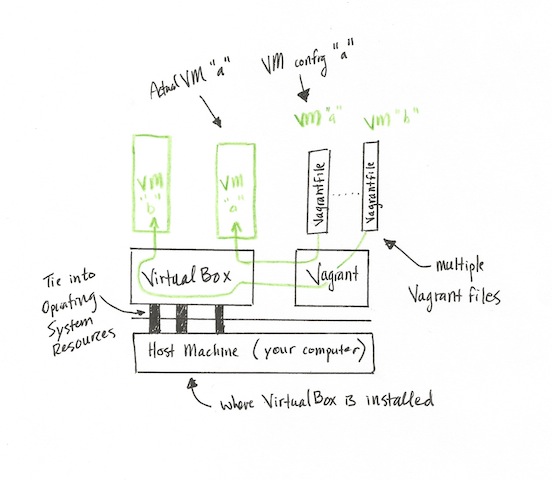 Actual VM "a"
VM config "a"
VM "a"
VM "b"
VM
"b"
VM
"a"
Vagrantfile
Vagrantfile
VirtualBox
Vagrant
multiple
Vagrant files
Tie into
Operating
System
Resources
Host Machine (your computer)
where VirtualBox is installed